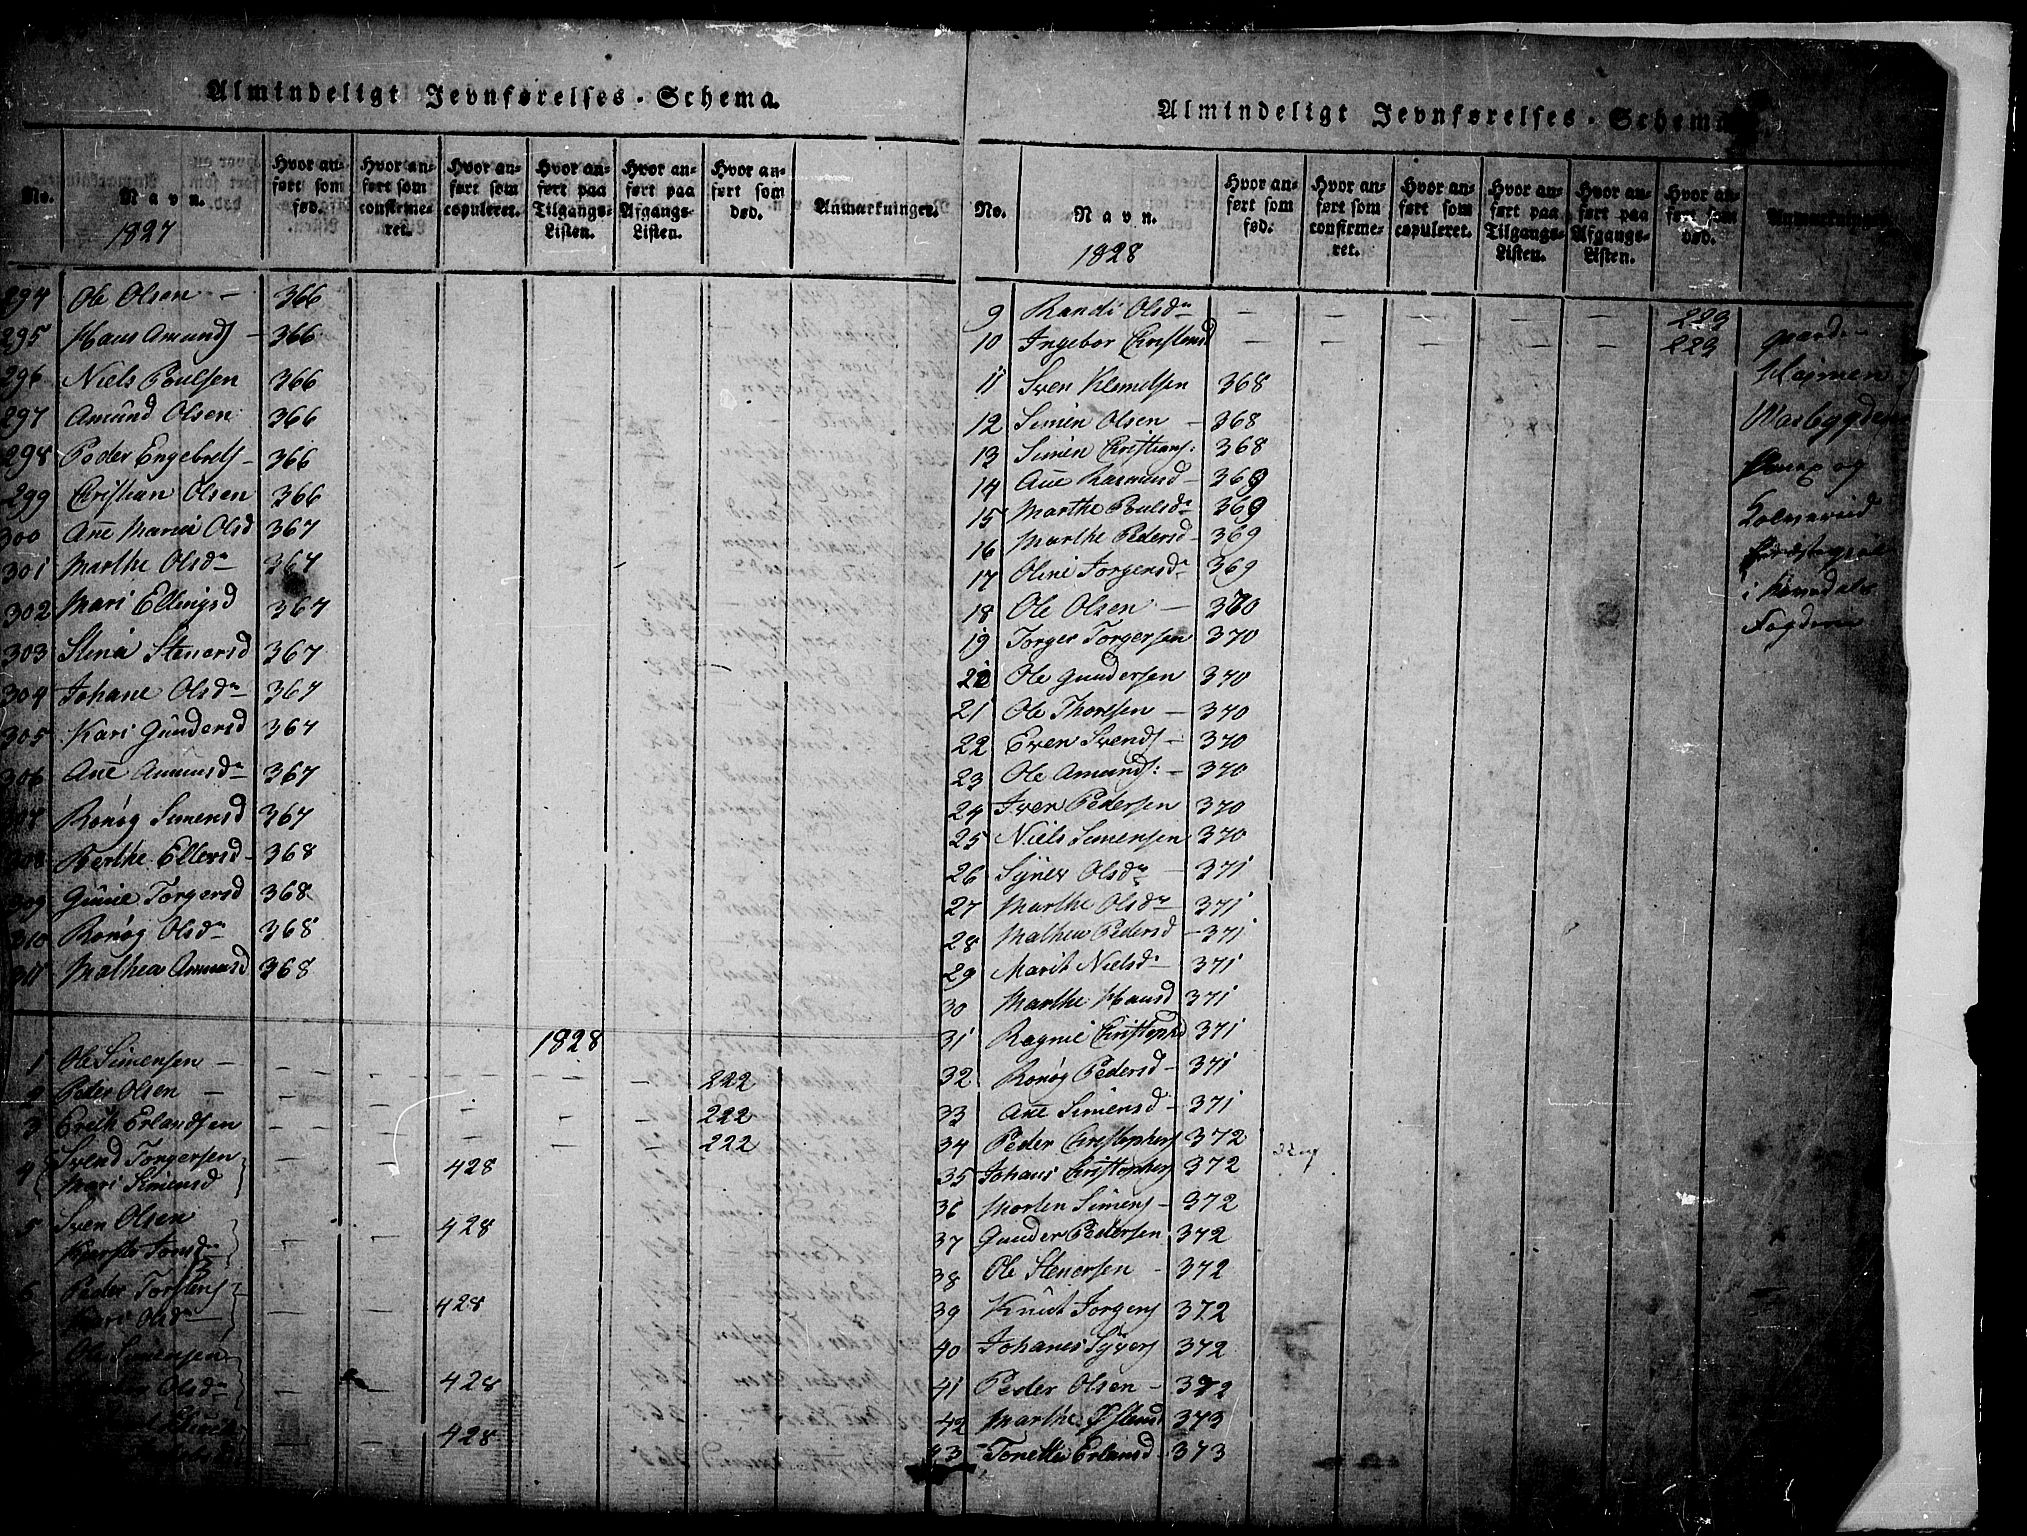 Almindeligt Jevnførelses-Schema.
No. Navn. Hvor anført som fød. Hvor anført som confirmeret. Hvor anført som copuleret. Hvor anført paa Tilgangs-Listen. Hvor anført paa Afgangs-Listen. Hvor anført som død. Anmærkninger.
1827
294 Ole Olsen – 366
295 Hans Amunds – 366
296 Niels Poulsen 366
297 Amund Olsen 366
298 Peder Engebrets – 366
299 Christian Olsen 366
300 Ane Maria Olsd 367
301 Marthe Olsdr 367
302 Mari Ellingsd 367
303 Stina Stenersd 367
304 Johane Olsdr 367
305 Kari Gundersd 367
306 Ane Amundsdr 367
307 Ronøg Simensd 367
308 Berthe Ellersd – 368
309 Gunie Torgersd 368
310 Ronøg Olsdr 368
311 Mathea Amunsd 368
1828
1 Ole Simensen – 222
2 Peder Olsen – 222
3 Erik Erlandsen 222
4 Svend Torgersen
Mari Simensd 428
5 Sven Olsen
428
6 Peder Torstens
Kari Olsdr 428
Ole Simensen
Olsdr 428
428
Almindeligt Jevnførelses-Schema
No. Navn. Hvor anført som fød. Hvor anført som confirmeret. Hvor anført som copuleret. Hvor anført paa Tilgangs-Listen. Hvor anført paa Afgangs-Listen. Hvor anført som død. Anmærkninger
1828
9 Randi Olsdr 223
10 Ingebor Christensd 223
11 Sven Klemetsen 368
12 Simen Olsen – 368
13 Simen Christians: 368
14 Ane Rasmusd – 369
15 Marthe Poulsdr 369
16 Marthe Pedersd – 369
17 Oline Torgersdr 369
18 Ole Olsen – 370
19 Torger Torgersen 370
20 Ole Gundersen 370
21 Ole Thoresen – 370
22 Even Svends – 370
23 Ole Amunds: – 370
24 Iver Pedersen 370
25 Niels Simensen 370
26 Olsdr – 371
27 Marthe Olsdr 371
28 Mathea Pedersd – 371
29 Marit Nielsdr 371
30 Marthe Hansd 371
31 Ragnie Christophd 371
32 Ronøg Pedersd – 371
33 Ane Simensd – 371
34 Peder Christophers 372
35 Johans Christophers 372
36 Morten Simens – 372
37 Gunder Pedersen 372
38 Ole Stenersen – 372
39 Knud Torgers 372
40 Johanes Syvers 372
41 Peder Olsen – 372
42 Marthe 373
43 Tonette Erlansd – 373
og
i
Fogderie